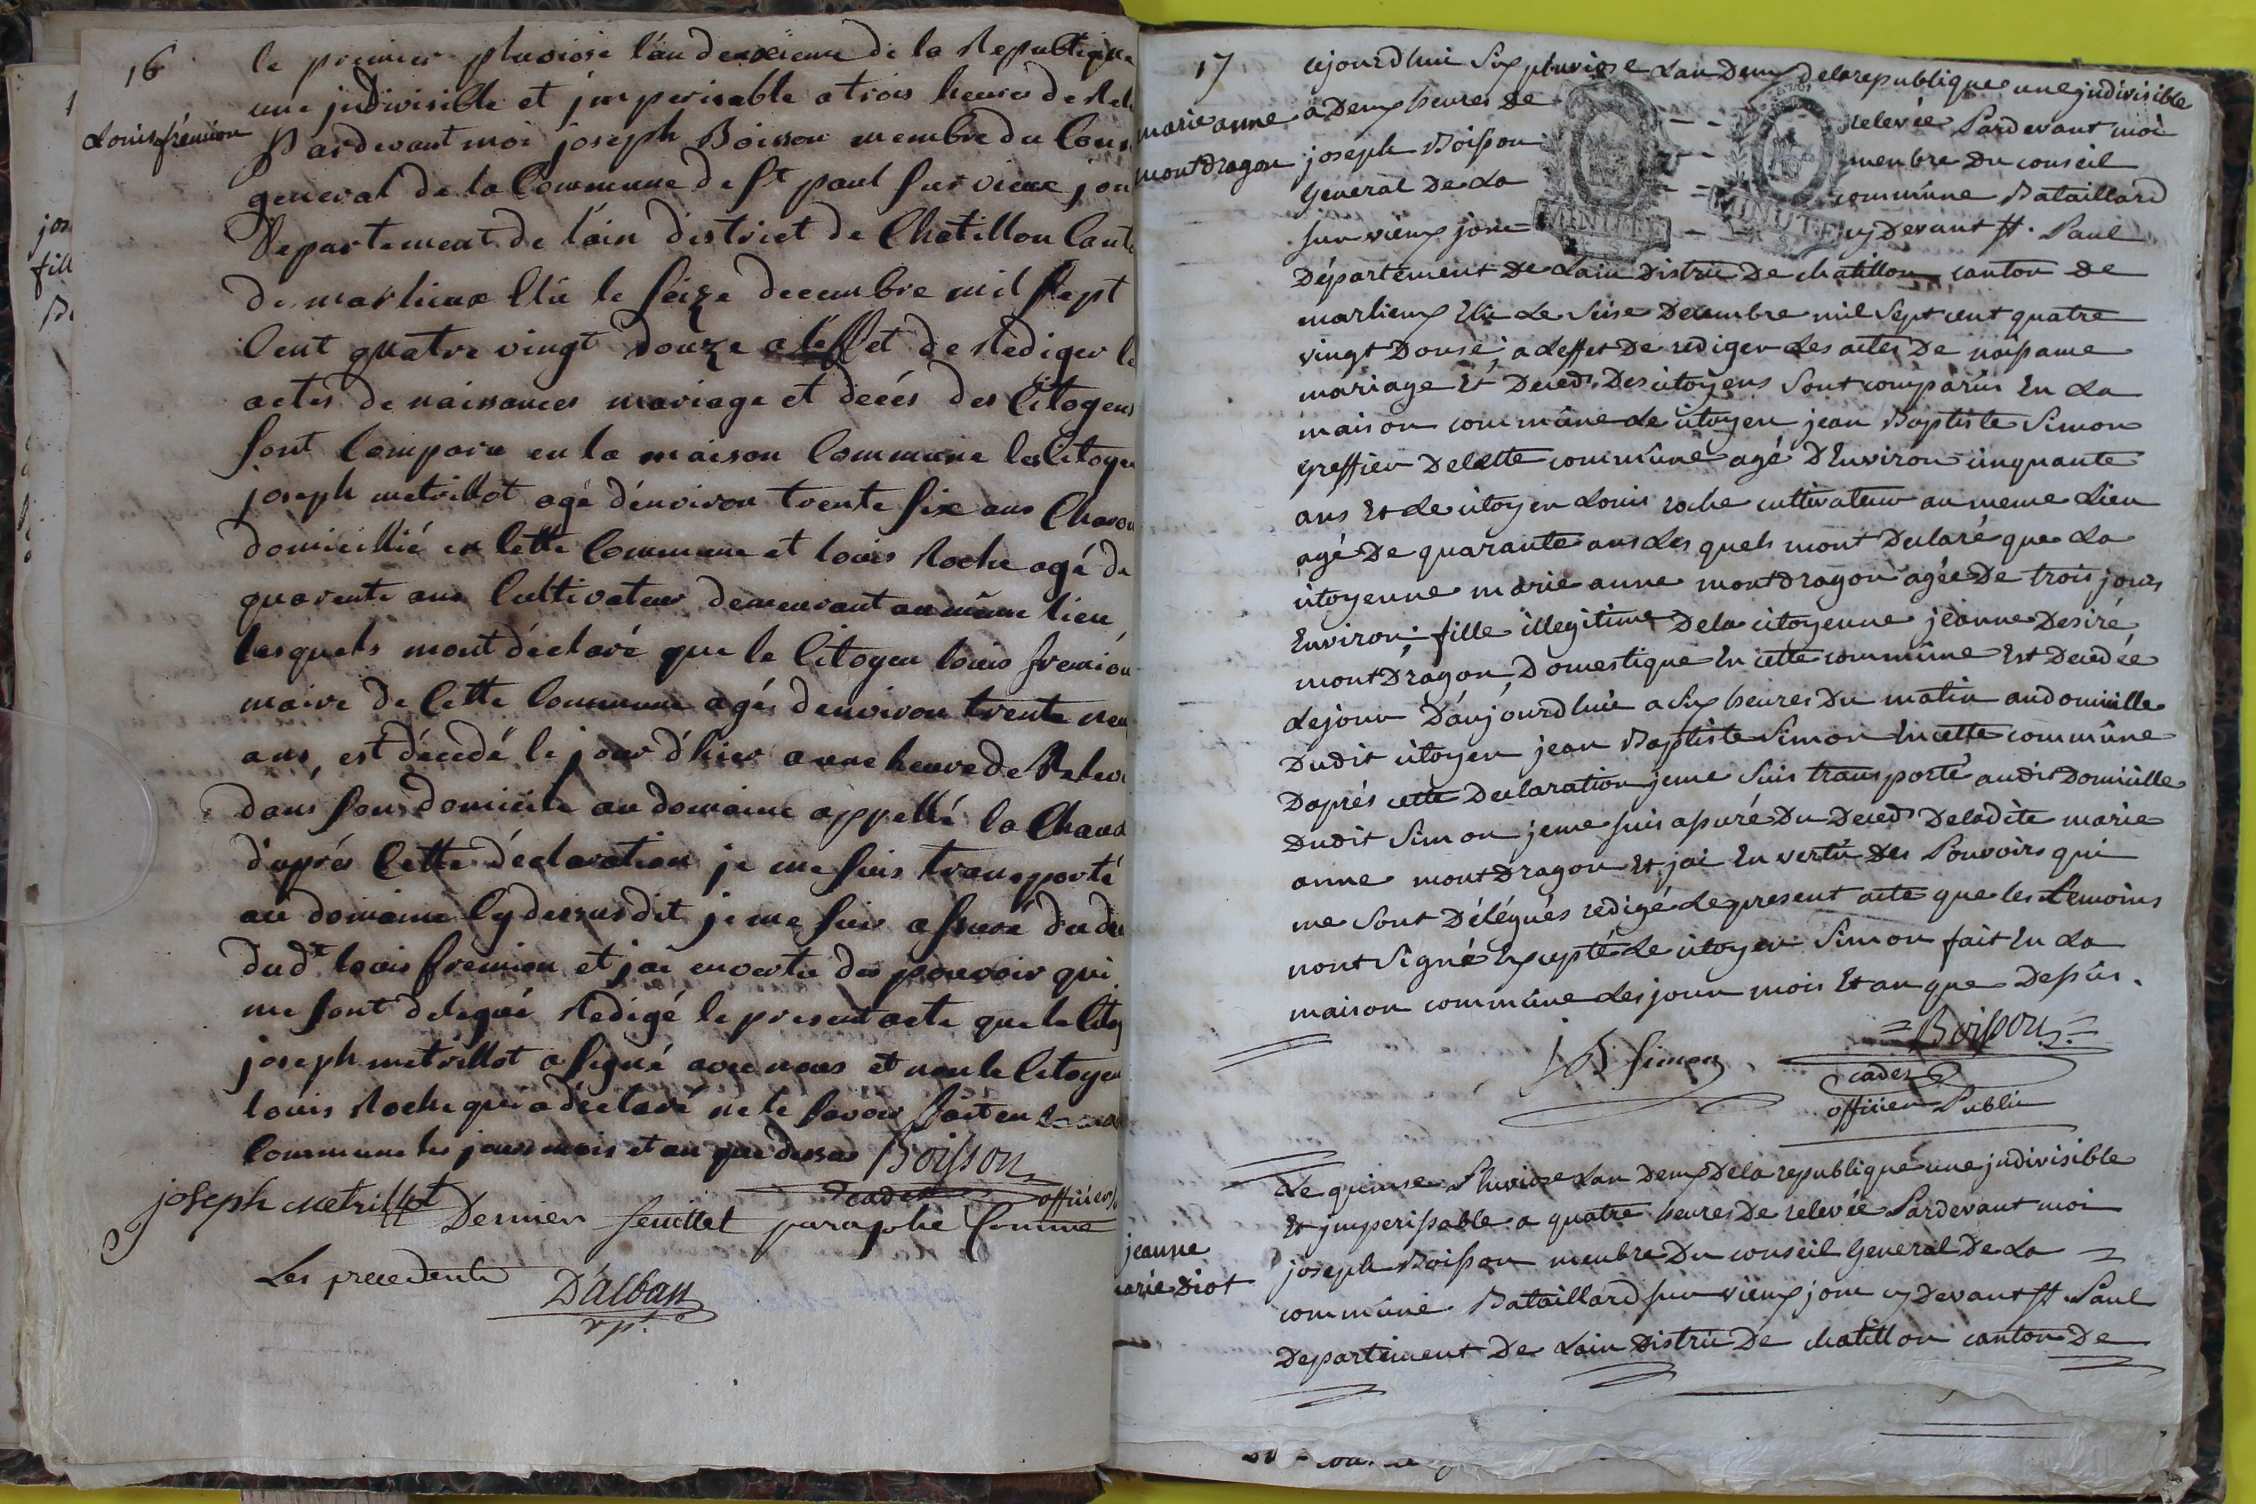 16
Louis frémion
le premier pluviose l'an deuxieme de la Republique
une jndivisible et jmperisable a trois heures de Rele
Pardevant moi joseph Boisson membre du Cons
general de la Commune de St paul sur vieux jon
Departement de l'ain district de Chatillon Cant
de marlieux Elû le seize decembre mil sept
Cent quatre vingt douze a l'effet de Rediger le
actes de naissances mariage et décés des Citoyens
sont Comparu en la maison Commune les Citoye
joseph metrillot agé d'environ trente six ans Charon
domicillié en Cette Commune et louis Roche agé de
quarente ans Cultivateur demeurant au même lieu
lesquels mont déclaré que le Citoyen louis fremion
maire de Cette Commune agés d'environ trente neu
ans, est décedé le jour d'hier a une heure de Relev
dans son domicile au domaine appellé la Chaud
d'aprés Cette déclaration je me suis transporté
au domaine Cy dessus dit je me suis assuré du de
dudt louis fremion et jai en vertu des pouvoir qui
me sont delegué Redigé le present acte que le Citoy
joseph metrillot a signé avec nous et non le Citoyen
louis Roche qui a déclaré ne le savoir fait en la
Commune les jours mois et an que dessus Boisson
cadet officier
joseph metrillot
Dernier feuillet paraphé Comme
Les precedents
D'alban
vpt.
17
marie anne
montdragon
ajourdhui six pluviose Lan Deux dela republique une jndivisible
a Deux heures de relevée Pardevant moi
joseph Boisson membre Du conseil
General De La commûne Bataillard
sur vieux jonc cy Devant st. Paul
MINUTE MINUTE
Département De Lain Distric De chatillon canton de
marlieux Elu Le Seise Decembre mil Sept cent quatre
vingt Douse, a Leffet De rediger Les actes De naissance
mariage Et Deced Des citoyens Sont comparûs En La
maison commûne Le citoyen jean Baptiste Simon
Greffier De cette commûne agé D'Environ cinquante
ans Et Le citoyen Louis roche cultivateur au meme Lieu
agé De quarante ans Les quels mont Declaré que La
citoyenne marie anne montdragon agée De trois jours
Environ fille illegitime De la citoyenne jeanne Desiré
montDragon, Domestique En cette commûne Est Decedée
Lejour D'aujourdhui a Six heures Du matin au domicille
Dudit citoyen jean Baptiste Simon En cette commûne
Daprés cette Declaration jeme Suis transporté audit Domicille
Dudit Simon jeme suis assuré Du Deced Deladite marie
anne montDragon Et jai En vertu Des Pouvoirs qui
me Sont Délégués redigé Le present acte que les temoins
nont Signé Excepté Le citoyen Simon fait En La
maison commûne Les jour mois Et an que Dessûs.
JB Simon
Boisson
cadet
officier Public
jeanne
marie Diot
Le quinse Pluviose Lan Deux Dela republique une jndivisible
Et jmperissable a quatre heures De relevée Pardevant moi
joseph Boisson menbre Du conseil General De La
commûne Bataillard sur vieux jonc cy Devant st. Paul
Departement De Lain Distric De chatillon canton De